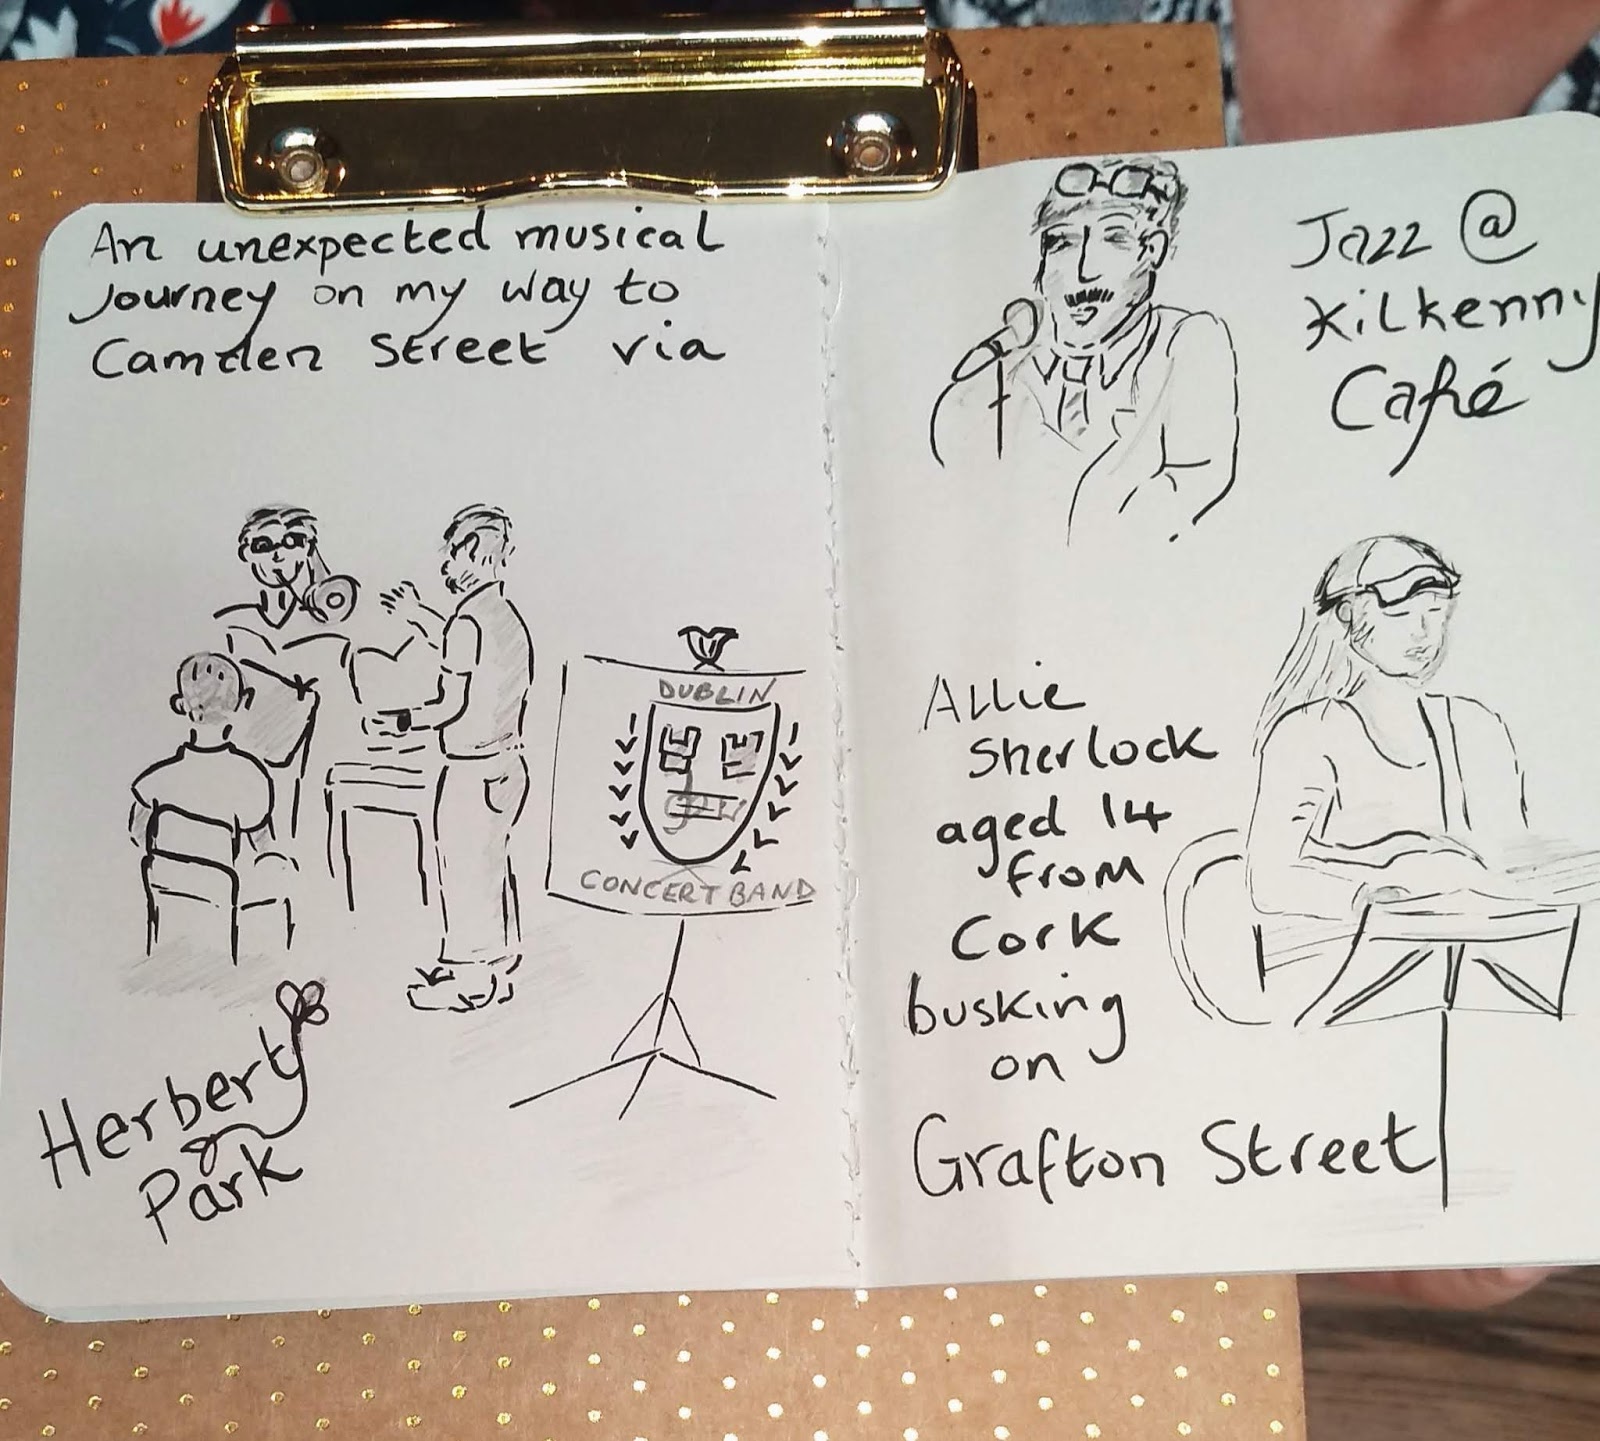 An unexpected musical
Journey on my way to
Camden Street via
DUBLIN
CONCERT BAND
Herbert
Park
Jazz @
Kilkenny
Café
Allie
Sherlock
aged 14
from
Cork
busking
on
Grafton Street